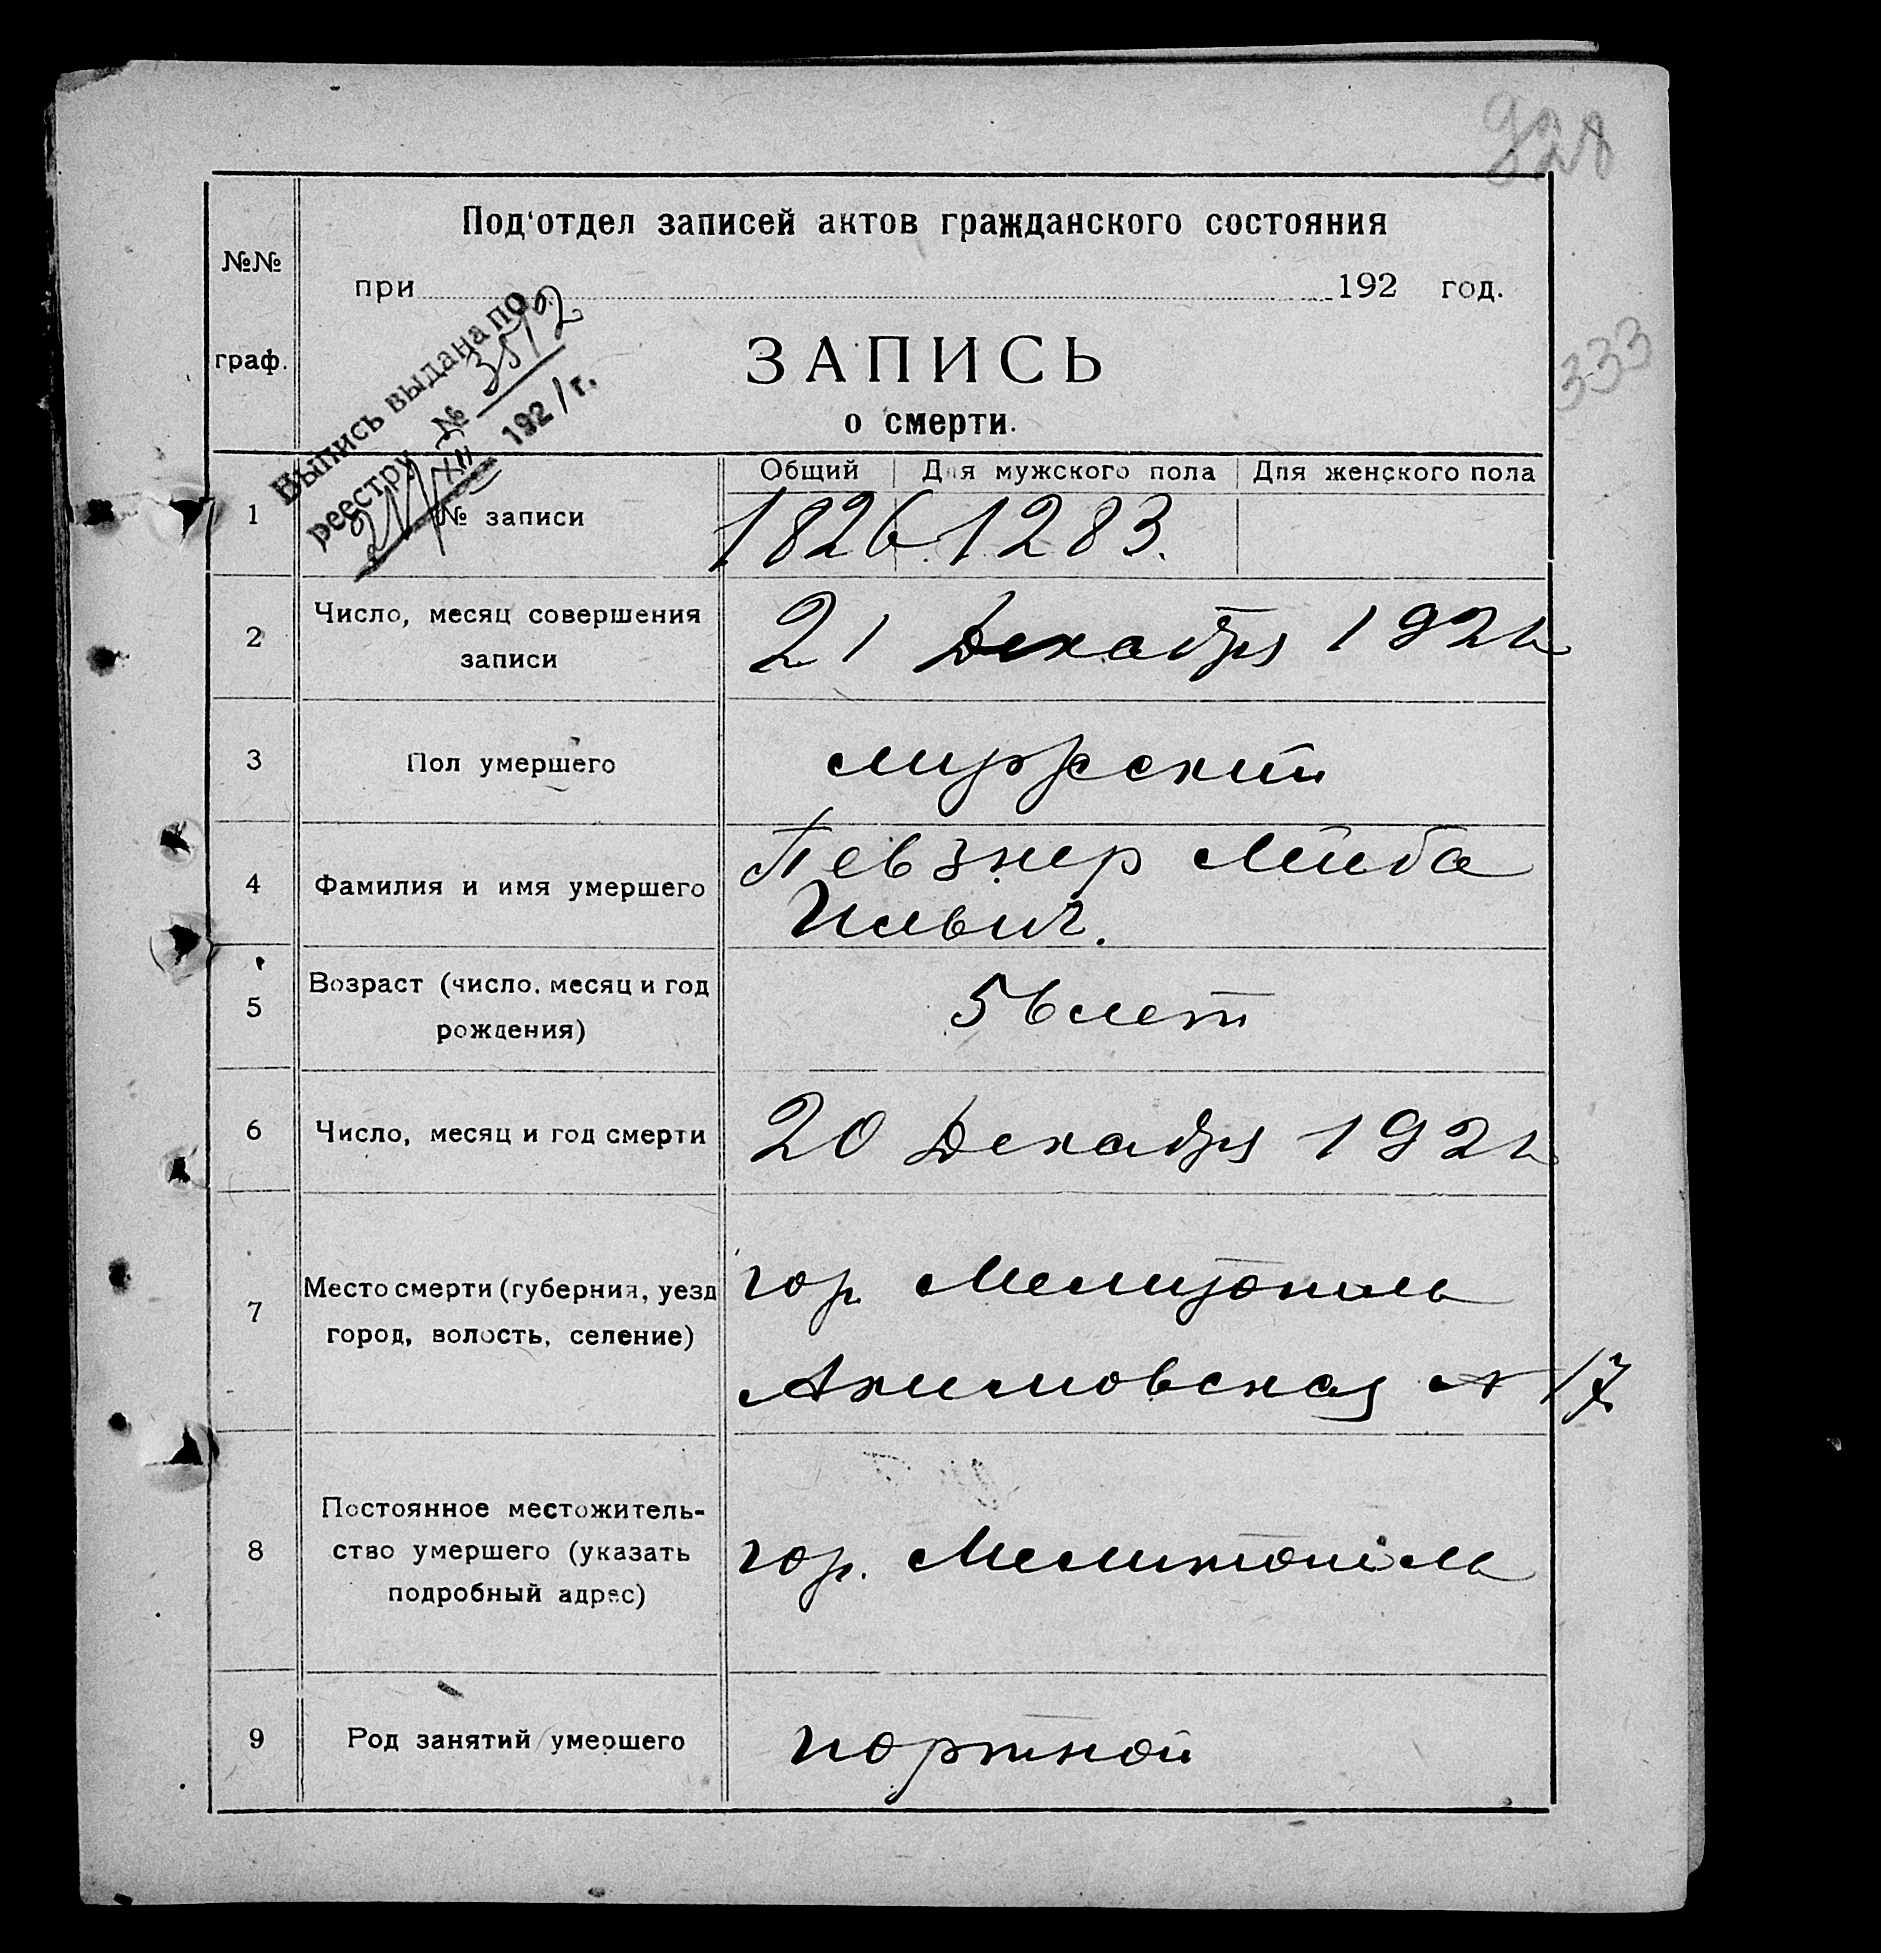 928
Под'отдел записей актов гражданского состояния
№№
при 192 год.
333
Выпись выдана по
реестру № 3512
21/XII 1921 г.
ЗАПИСЬ
граф.
о смерти.
Общий Для мужского пола Для женского пола
1 № записи 1826 1283.
2 Число, месяц совершения
записи
21 Декабря 1921
3 Пол умершего мужской
4 Фамилия и имя умершего
Певзнер Лейба
Ильич.
5 Возраст (число, месяц и год
рождения)
56 лет
6 Число, месяц и год смерти 20 Декабря 1921
7 Место смерти (губерния, уезд
город, волость, селение)
гор. Мелитополь
Акимовская № 17
8 Постоянное местожитель-
ство умершего (указать
подробный адрес)
гор. Мелитополь
9 Род занятий умершего портной